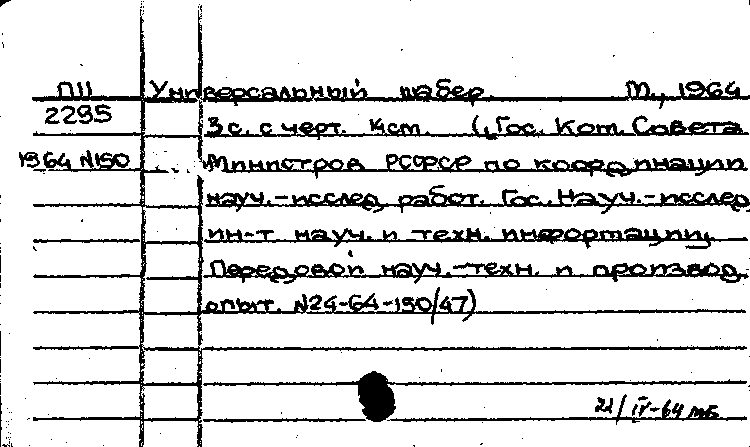 П11 Универсальный шабер. М., 1964
2295 3 с. с черт. 1см. (Гос. Ком. Совета
1964 N190 Министров РСФСР по координации
науч.-исслед. работ. Гос. Науч.-исслед.
ин-т науч. и техн. информации.
Передовой науч.-техн. и производ.
опыт. N24-64-190/47)
22/IV-64 мб